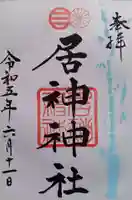 奉拝
居神神社
令和五年六月十一日